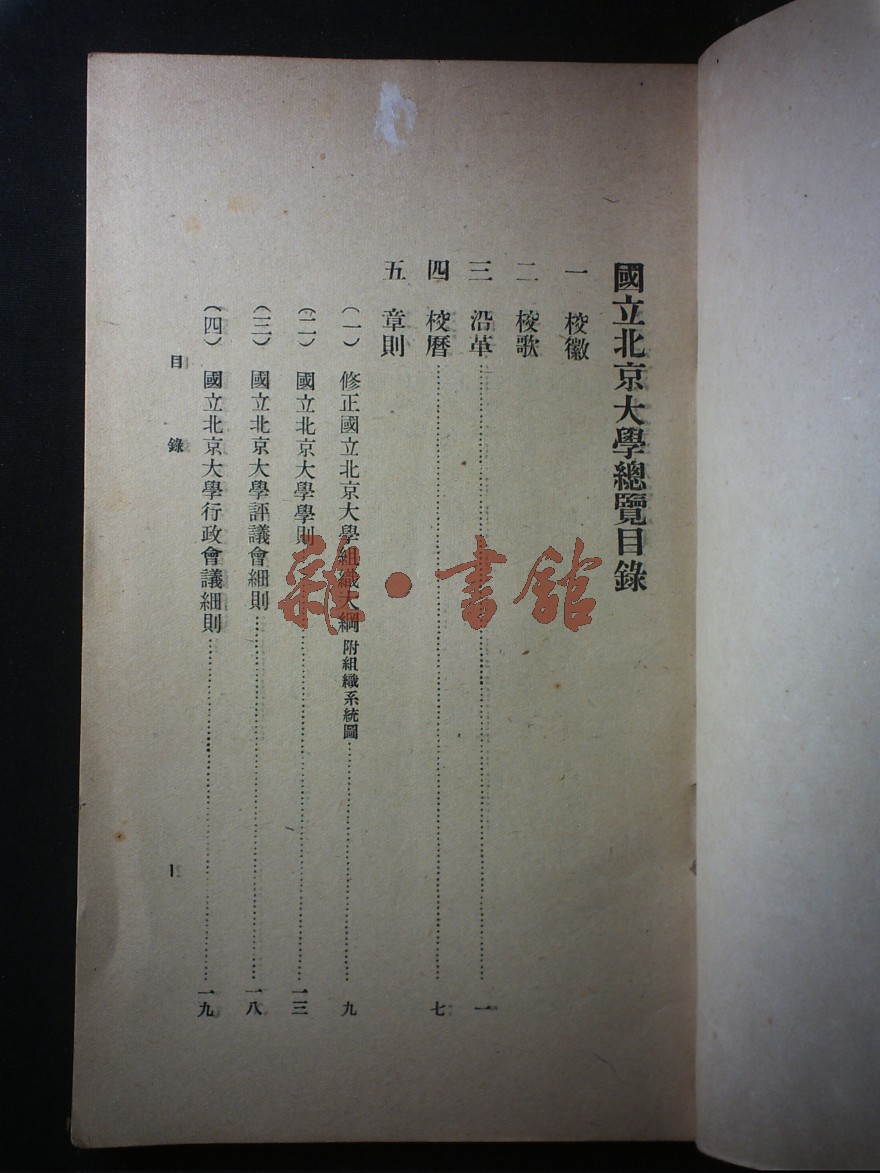 國立北京大學總覽目錄
一 校徽
二 校歌
三 沿革……一
四 校曆……七
五 章則
(一) 修正國立北京大學組織大綱 附組織系統圖……九
(二) 國立北京大學學則……一三
(三) 國立北京大學評議會細則……一八
(四) 國立北京大學行政會議細則……一九
目錄
一
雜·書館